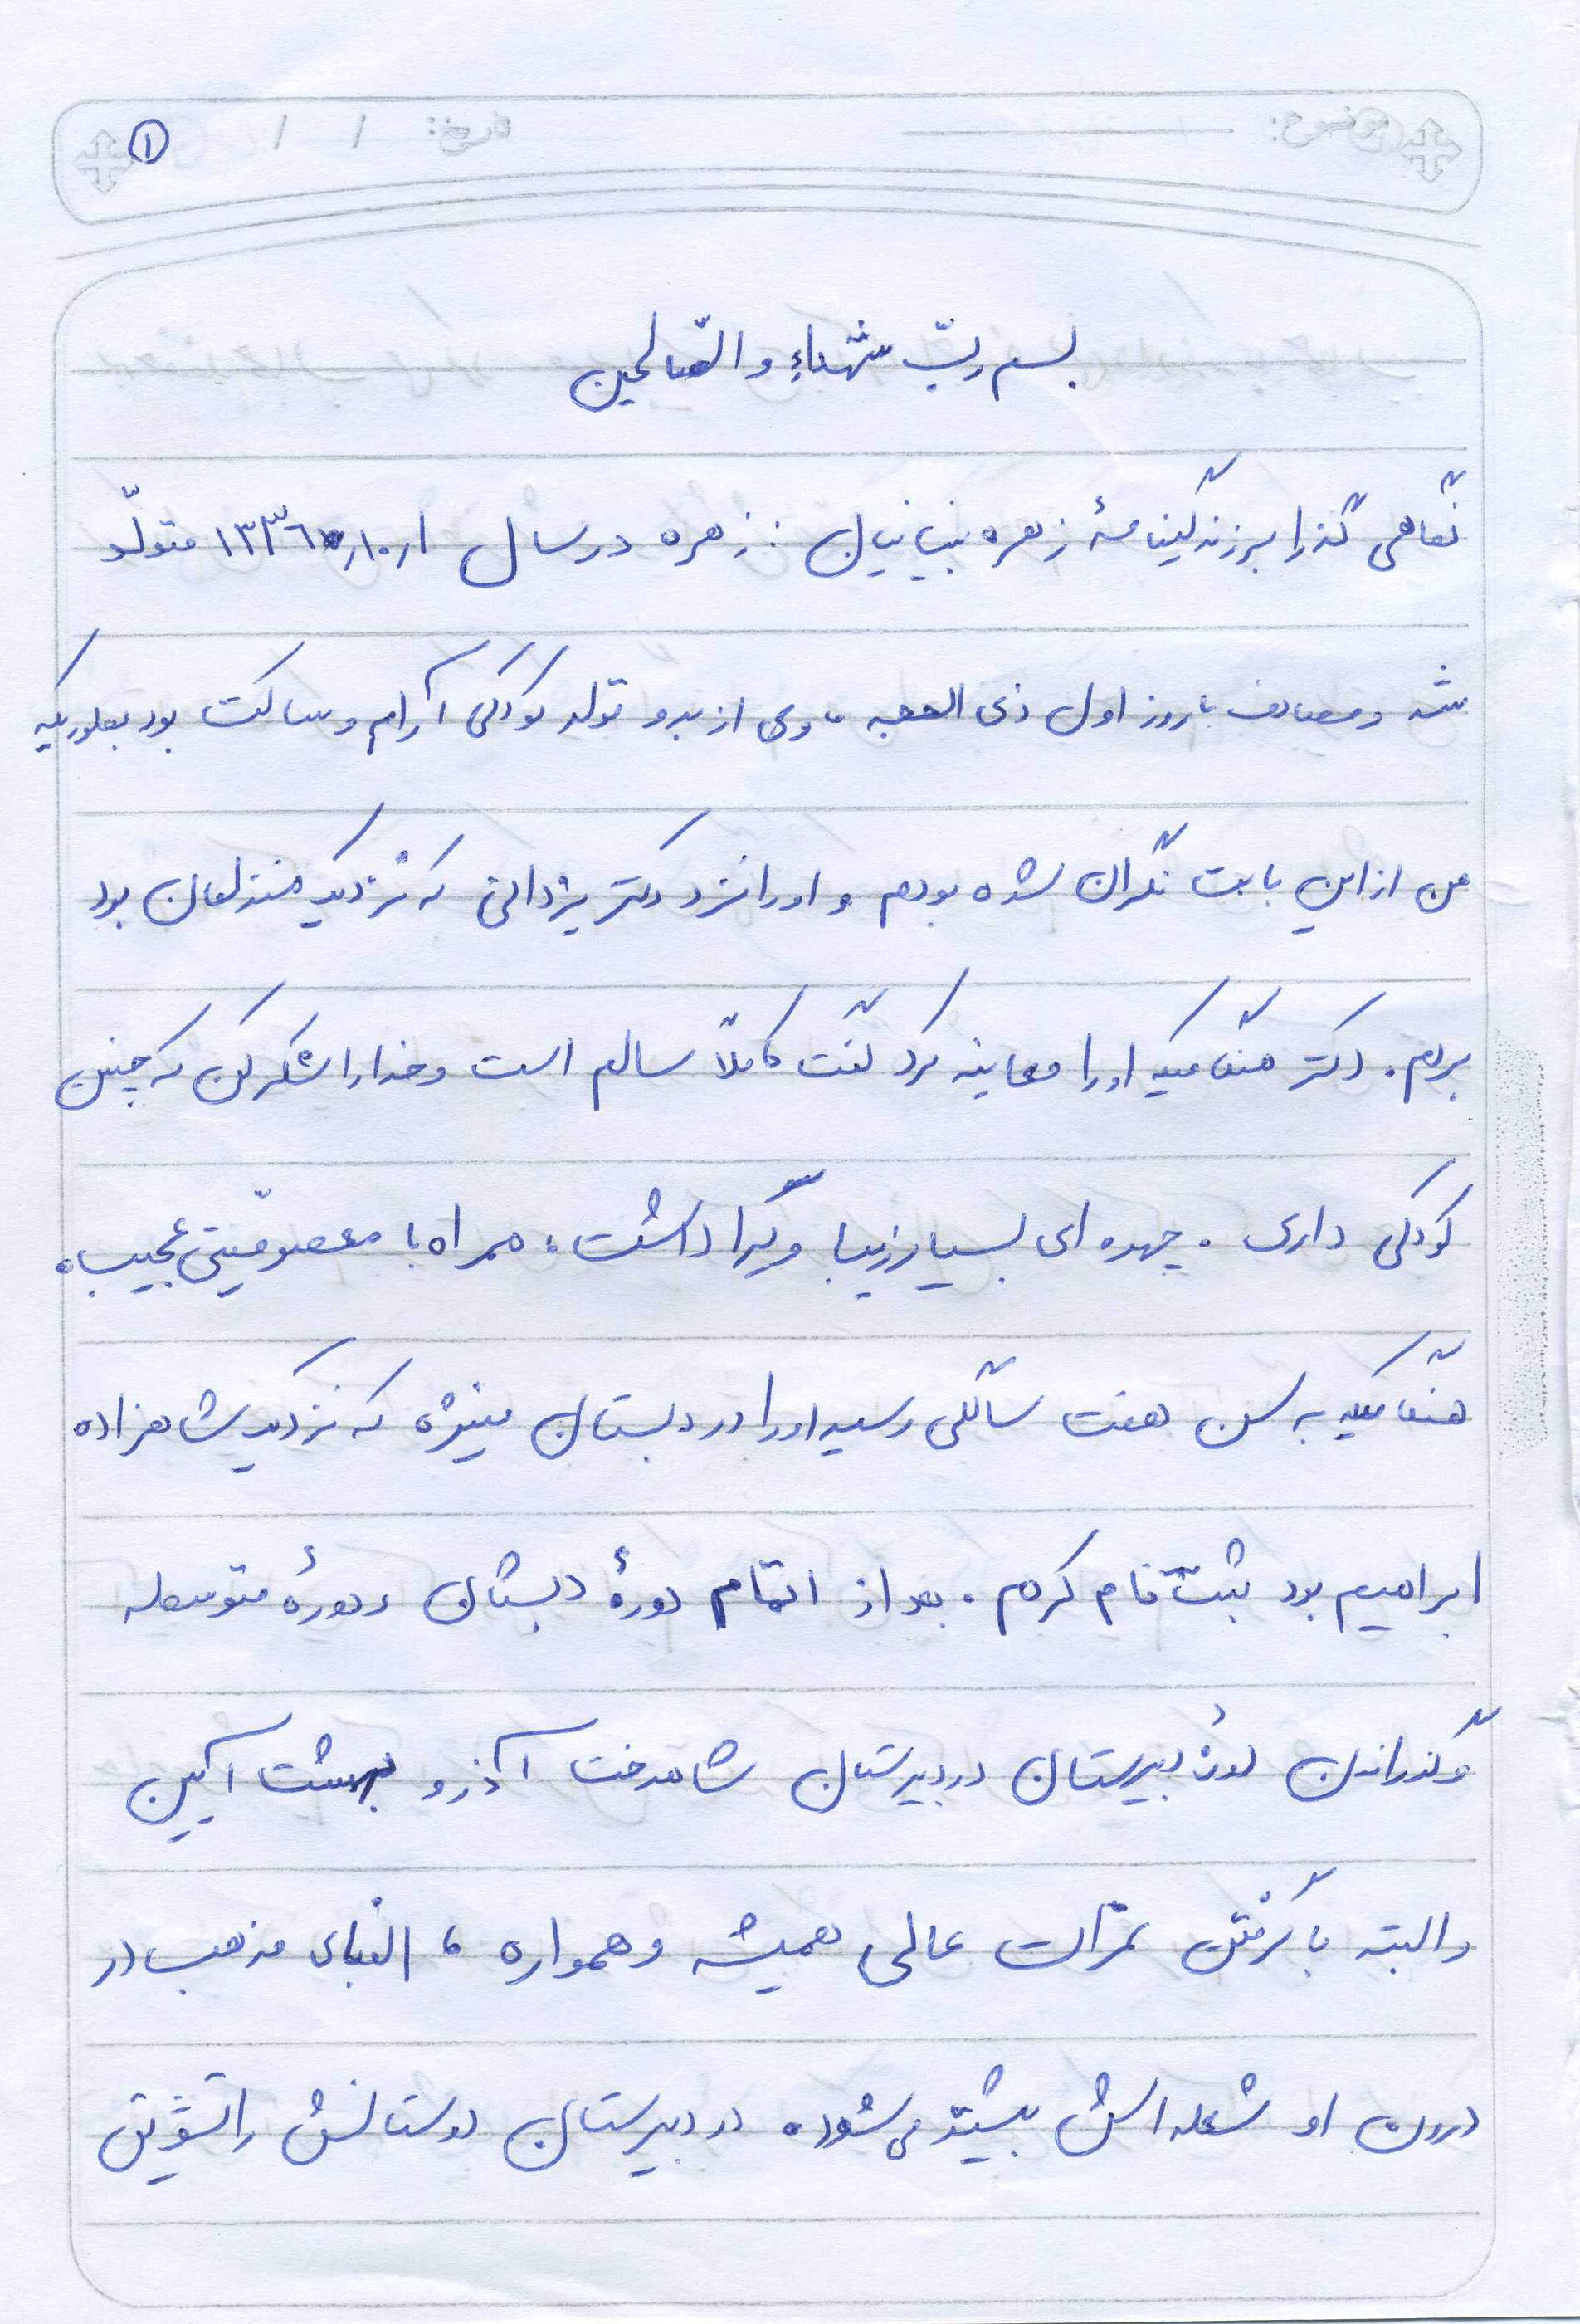 موضوع: تاریخ: / / ۱
بسم ربّ شهداءِ و الصّالحین
نگاهی گذرا بر زندگینامهٔ زهره بنیانیان : زهره در سال ۱۳۳۶/۱۰/۱ متولّد
شد و مصادف با روز اول ذی الحجه ، وی از بدو تولد کودکی آرام و ساکت بود بطوریکه
من از این بابت نگران شده بودم و او را نزد دکتر یزدانی که نزدیک منزلمان بود
بردم . دکتر هنگامیکه او را معاینه کرد گفت کاملاً سالم است و خدا را شکر کن که چنین
کودکی داری . چهره ای بسیار زیبا و گیرا داشت ، همراه با معصومّیتی عجیب .
هنگامیکه به سن هفت سالگی رسید او را در دبستان منیژه که نزدیک شاهزاده
ابراهیم بود ثبت نام کردم . بعد از اتمام دورهٔ دبستان و دورهٔ متوسطه
و گذراندن دورهٔ دبیرستان در دبیرستان شاهدخت آذر و بهشت آیین
و البته با گرفتن نمرات عالی همیشه و همواره ، الفبای مذهب در
درون او شعله اش بیشتر می شود . در دبیرستان دوستانش را تشویق